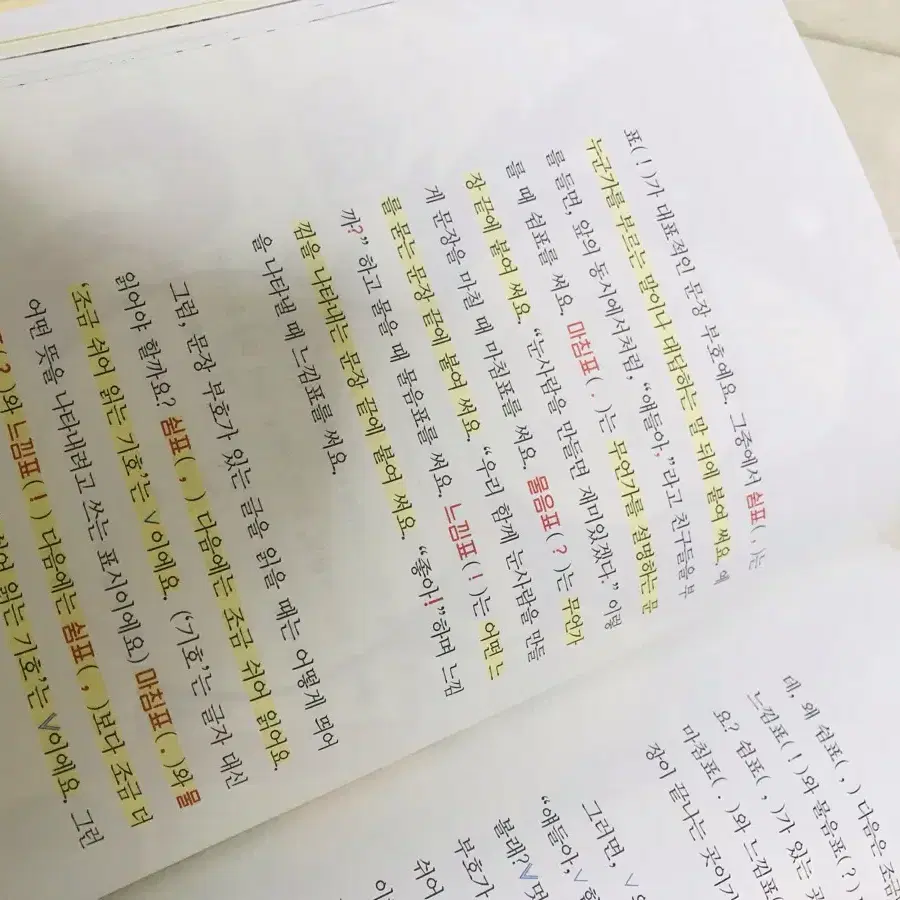 표( ! )가 대표적인 문장 부호예요. 그중에서 쉼표( , )는
누군가를 부르는 말이나 대답하는 말 뒤에 붙여 써요. 예
를 들면, 앞의 동시에서처럼, “얘들아,”라고 친구들을 부
를 때 쉼표를 써요. 마침표( . )는 무언가를 설명하는 문
장 끝에 붙여 써요. “눈사람을 만들면 재미있겠다.” 이렇
게 문장을 마칠 때 마침표를 써요. 물음표( ? )는 무언가
를 묻는 문장 끝에 붙여 써요. “우리 함께 눈사람을 만들
까?” 하고 물을 때 물음표를 써요. 느낌표( ! )는 어떤 느
낌을 나타내는 문장 끝에 붙여 써요. “좋아!”하며 느낌
을 나타낼 때 느낌표를 써요.
그럼, 문장 부호가 있는 글을 읽을 때는 어떻게 띄어
읽어야 할까요? 쉼표( , ) 다음에는 조금 쉬어 읽어요.
‘조금 쉬어 읽는 기호’는 ∨이에요. (‘기호’는 글자 대신
어떤 뜻을 나타내려고 쓰는 표시이에요) 마침표( . )와 물
( ? )와 느낌표( ! ) 다음에는 쉼표( , )보다 조금 더
읽는 기호’는 ⩔이에요. 그런
데, 왜 쉼표( , ) 다음은 조금
느낌표( ! )와 물음표( ? )
요? 쉼표( , )가 있는 곳
마침표( . )와 느낌표
장이 끝나는 곳이기
그러면,
“얘들아,∨
볼래?⩔
부호가
쉬어